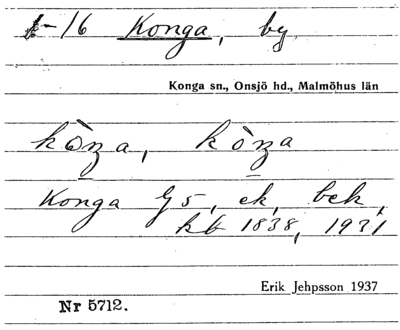 1-16 Konga, by.
Konga sn., Onsjö hd., Malmöhus län
kòŋa, kòŋa
Konga G5, ek, bek,
kb 1838, 1931
Erik Jehpsson 1937
Nr 5712.